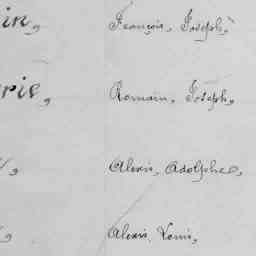 in, François, Joseph,
rie, Romain, Joseph,
Alexis, Adolphe,
Alexis, Louis,